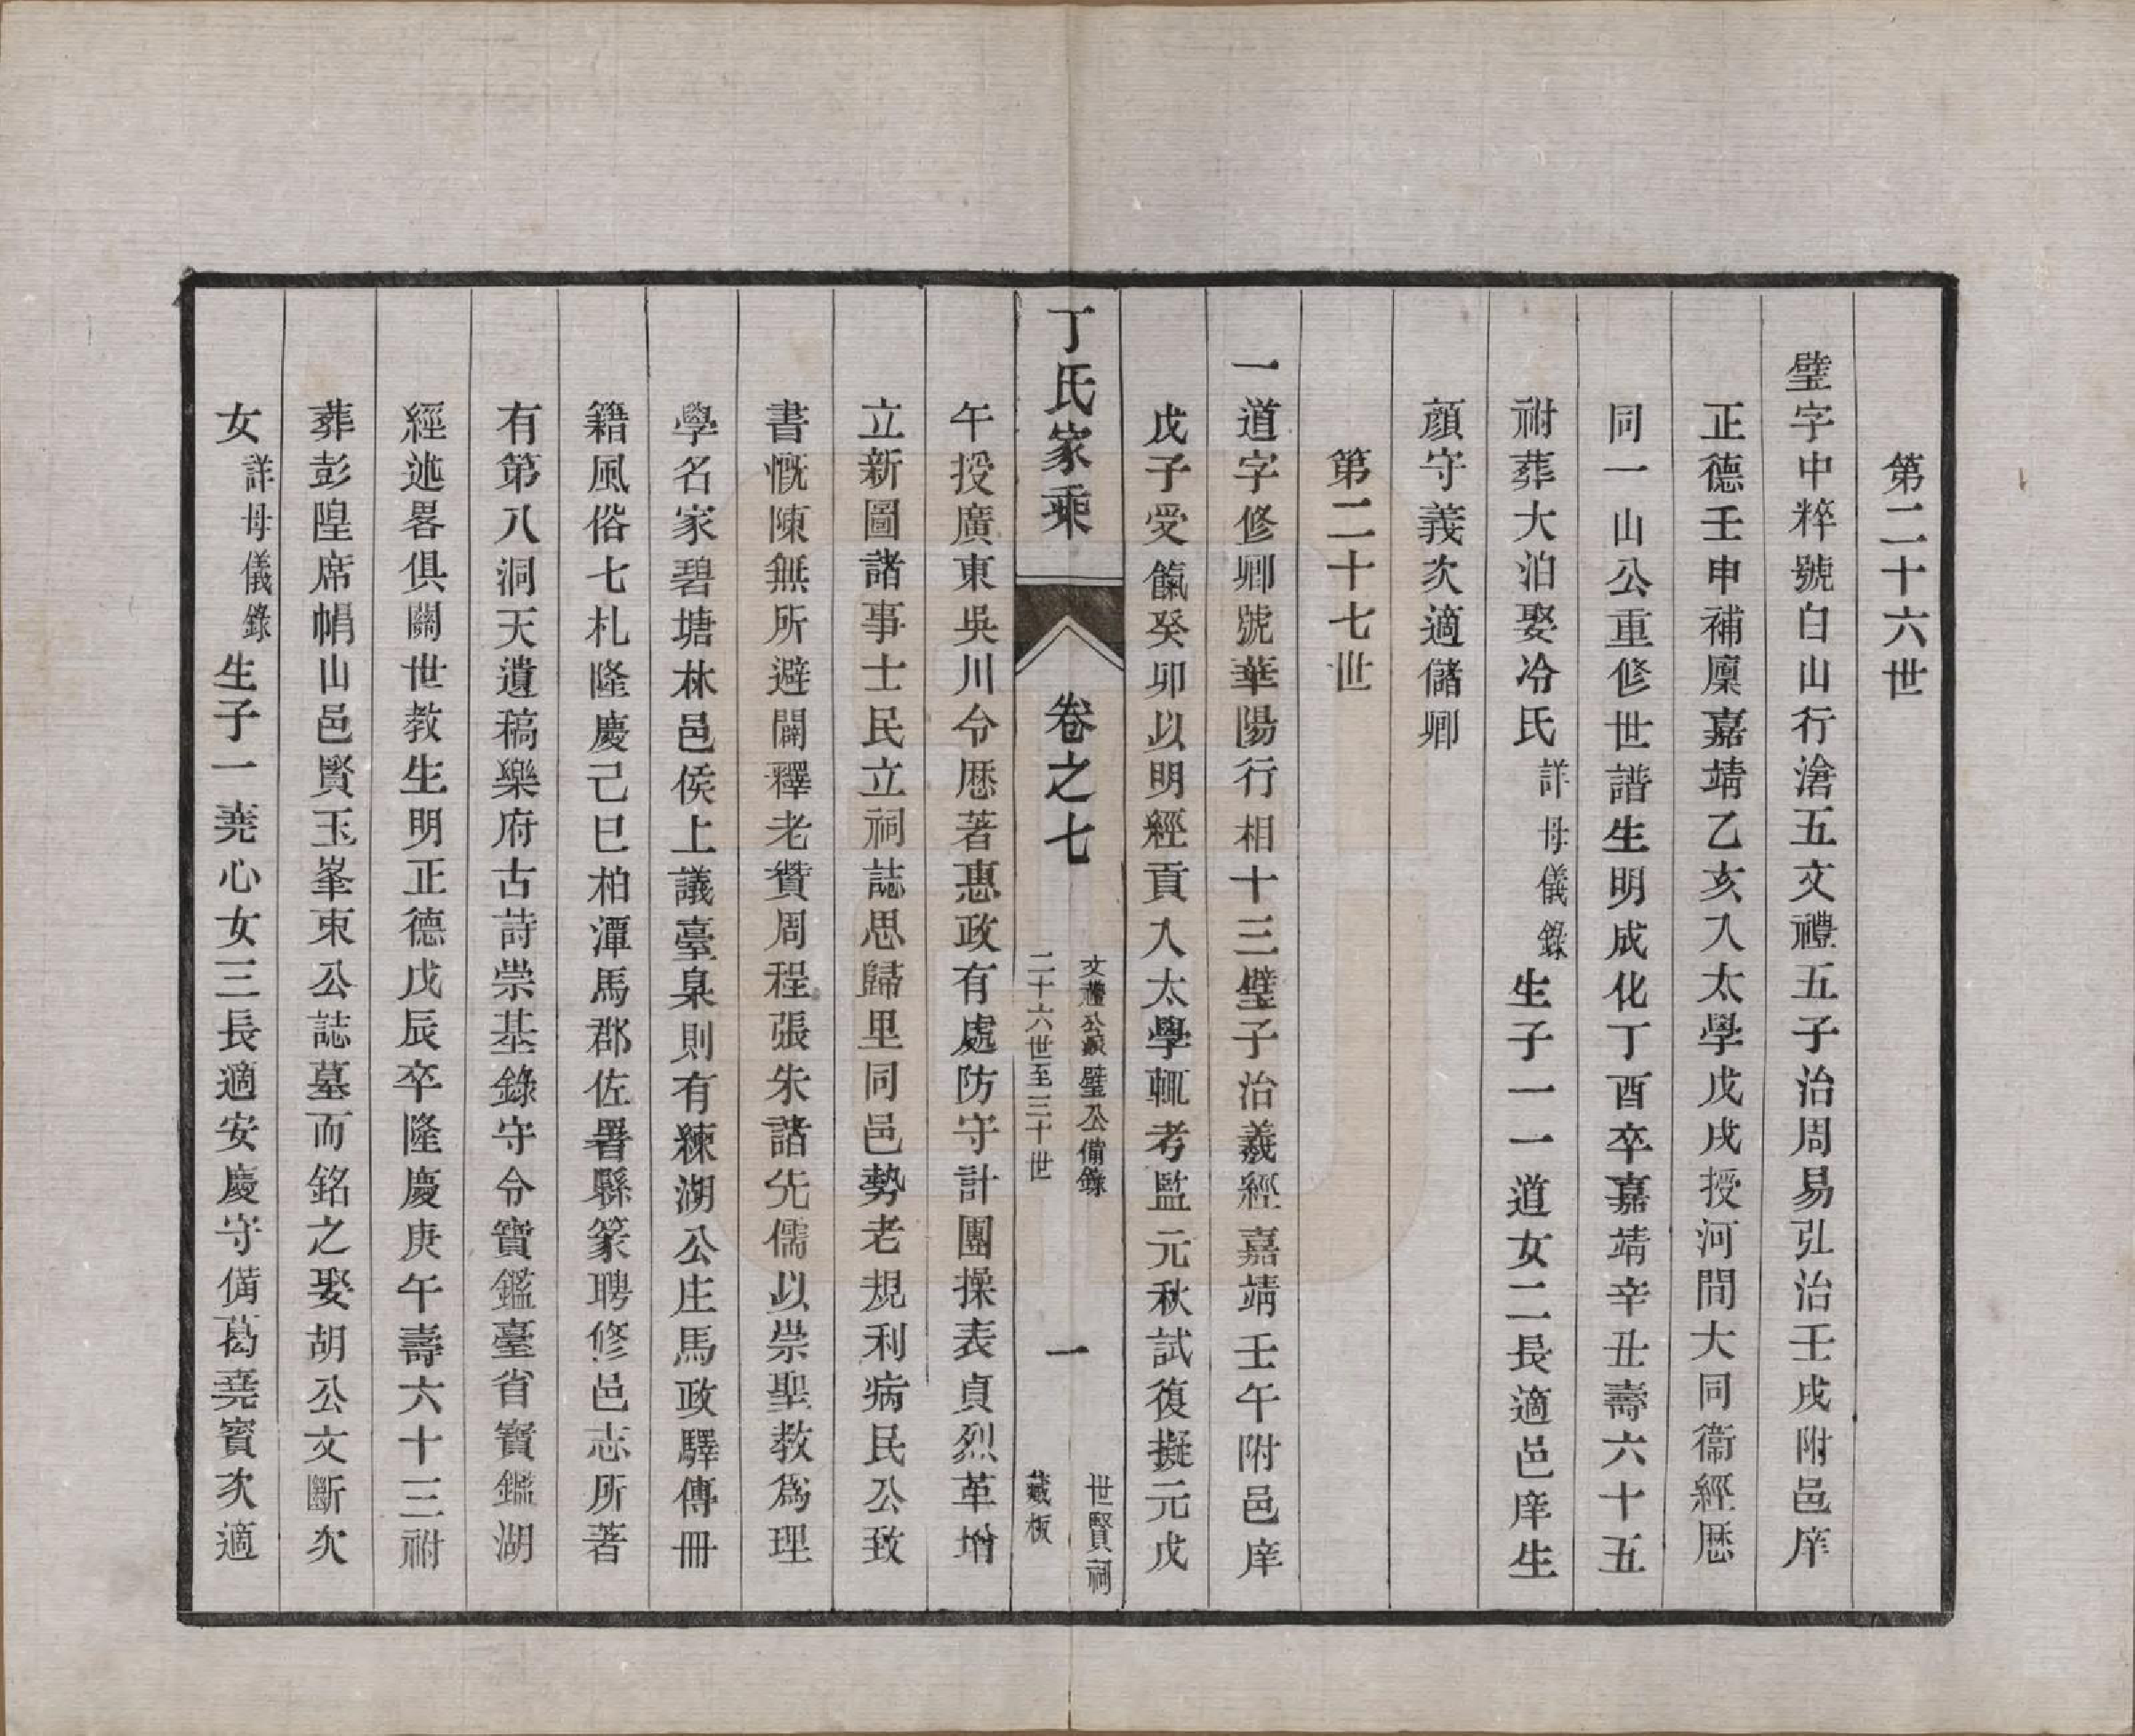 第二十六世
璧字中粹號白山行滄五文禮五子治周易弘治壬戌附邑庠
正德壬申補廩嘉靖乙亥入太學戊戌授河間大同衞經歷
同一山公重修世譜生明成化丁酉卒嘉靖辛丑壽六十五
祔葬大泊娶冷氏詳母儀錄生子一一道女二長適邑庠生
顏守義次適儲卿
第二十七世
一道字修卿號華陽行相十三璧子治義經嘉靖壬午附邑庠
戊子受餼癸卯以明經貢入太學輒考監元秋試復擬元戊
丁氏家乘
卷之七
文禮公派璧公備錄
二十六世至三十世
一
世賢祠
藏板
午授廣東吳川令歷著惠政有處防守計團操表貞烈革增
立新圖諸事士民立祠誌思歸里同邑勢老規利病民公致
書慨陳無所避闢釋老贊周程張朱諸先儒以崇聖教爲理
學名家碧塘林邑侯上議臺臬則有練湖公庄馬政驛傳冊
籍風俗七札隆慶己巳柏潭馬郡佐署縣篆聘修邑志所著
有第八洞天遺稿樂府古詩崇基錄守令寶鑑臺省寶鑑湖
經述畧俱關世教生明正德戊辰卒隆慶庚午壽六十三祔
葬彭隍席帽山邑賢玉峯束公誌墓而銘之娶胡公文斷次
女詳母儀錄生子一堯心女三長適安慶守備葛堯賓次適